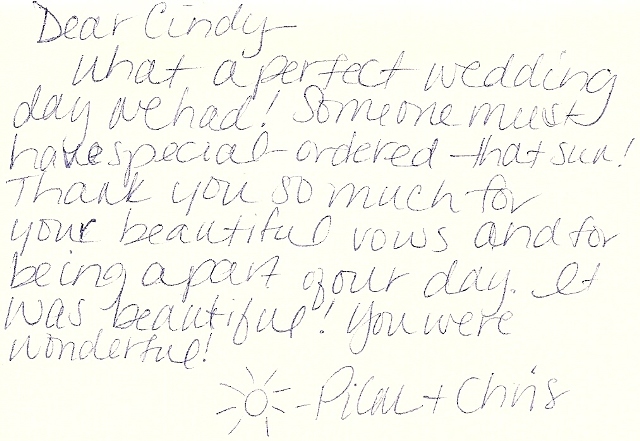 Dear Cindy-
What a perfect wedding
day we had! Someone must
have special-ordered that sun!
Thank you so much for
your beautiful vows and for
being a part of our day. It
was beautiful! You were
wonderful!
-Pilar + Chris